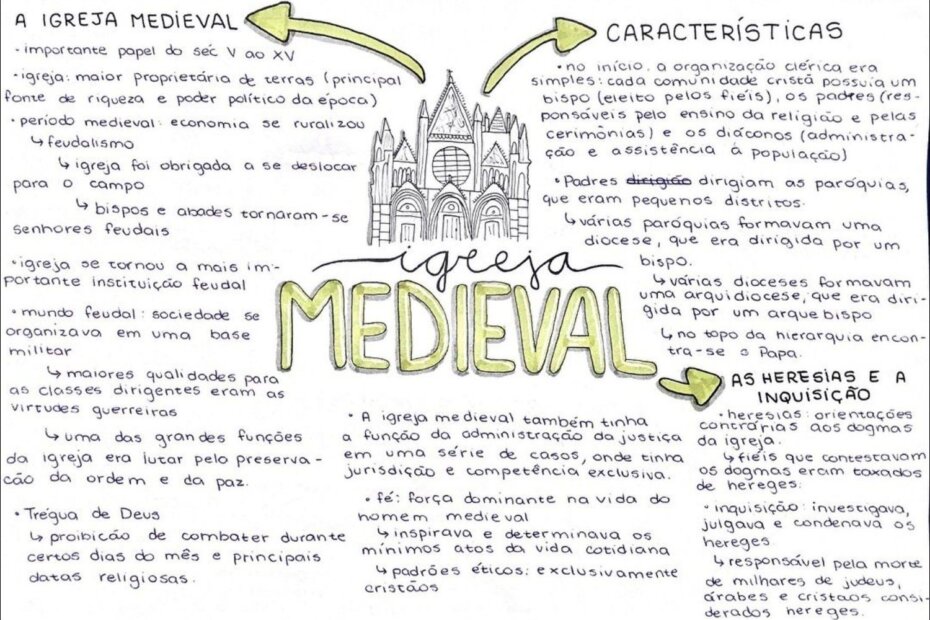 A IGREJA MEDIEVAL
• importante papel do séc V ao XV
• igreja: maior proprietária de terras (principal
fonte de riqueza e poder político da época)
• período medieval: economia se ruralizou
↳ feudalismo
↳ igreja foi obrigada a se deslocar
para o campo
↳ bispos e abades tornaram-se
senhores feudais
• igreja se tornou a mais im-
portante instituição feudal
• mundo feudal: sociedade se
organizava em uma base
militar
↳ maiores qualidades para
as classes dirigentes eram as
virtudes guerreiras
↳ uma das grandes funções
da igreja era lutar pelo preserva-
ção da ordem e da paz.
• Trégua de Deus
↳ proibição de combater durante
certos dias do mês e principais
datas religiosas.
igreja
MEDIEVAL
• A igreja medieval também tinha
a função da administração da justiça
em uma série de casos, onde tinha
jurisdição e competência exclusiva.
• fé: força dominante na vida do
homem medieval
↳ inspirava e determinava os
mínimos atos da vida cotidiana
↳ padrões éticos: exclusivamente
cristãos
CARACTERÍSTICAS
• no início, a organização clérica era
simples: cada comunidade cristã possuia um
bispo (eleito pelos fiéis), os padres (res-
ponsáveis pelo ensino da religião e pelas
cerimônias) e os diáconos (administra-
ção e assistência à população)
• Padres dirigião dirigiam as paróquias,
que eram pequenos distritos.
↳ várias paróquias formavam uma
diocese, que era dirigida por um
bispo.
↳ várias dioceses formavam
uma arquidiocese, que era diri-
gida por um arquebispo
↳ no topo da hierarquia encon-
tra-se o Papa.
AS HERESIAS E A
INQUISIÇÃO
• heresias: orientações
contrárias aos dogmas
da igreja.
↳ fiéis que contestavam
os dogmas eram taxados
de hereges.
• inquisição: investigava,
julgava e condenava os
hereges
↳ responsável pela morte
de milhares de judeus,
árabes e cristãos consi-
derados hereges.